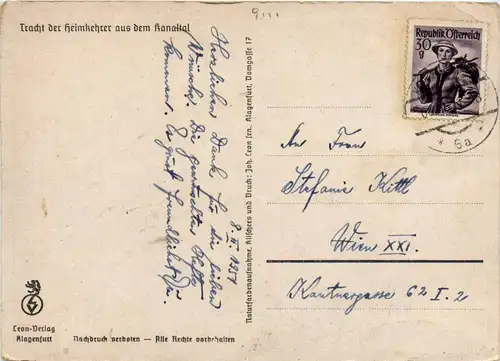 9.,,,
Tracht der Heimkehrer aus dem Kanaltal
8. IV. 1951
Herzlichen Dank für die lieben
Wünsche. Die gewünschten Hefte
kommen. Es grüßt freundlichst Ihr
Leon-Verlag
Klagenfurt
Nachdruck verboten — Alle Rechte vorbehalten
Naturfarbenaufnahme, Klischees und Druck: Joh. Leon sen., Klagenfurt, Domgasse 17
Republik Österreich
30
g
* 6a
An Frau
Stefanie Kittl
Wien XXI.
Kantnergasse 62 I. 2